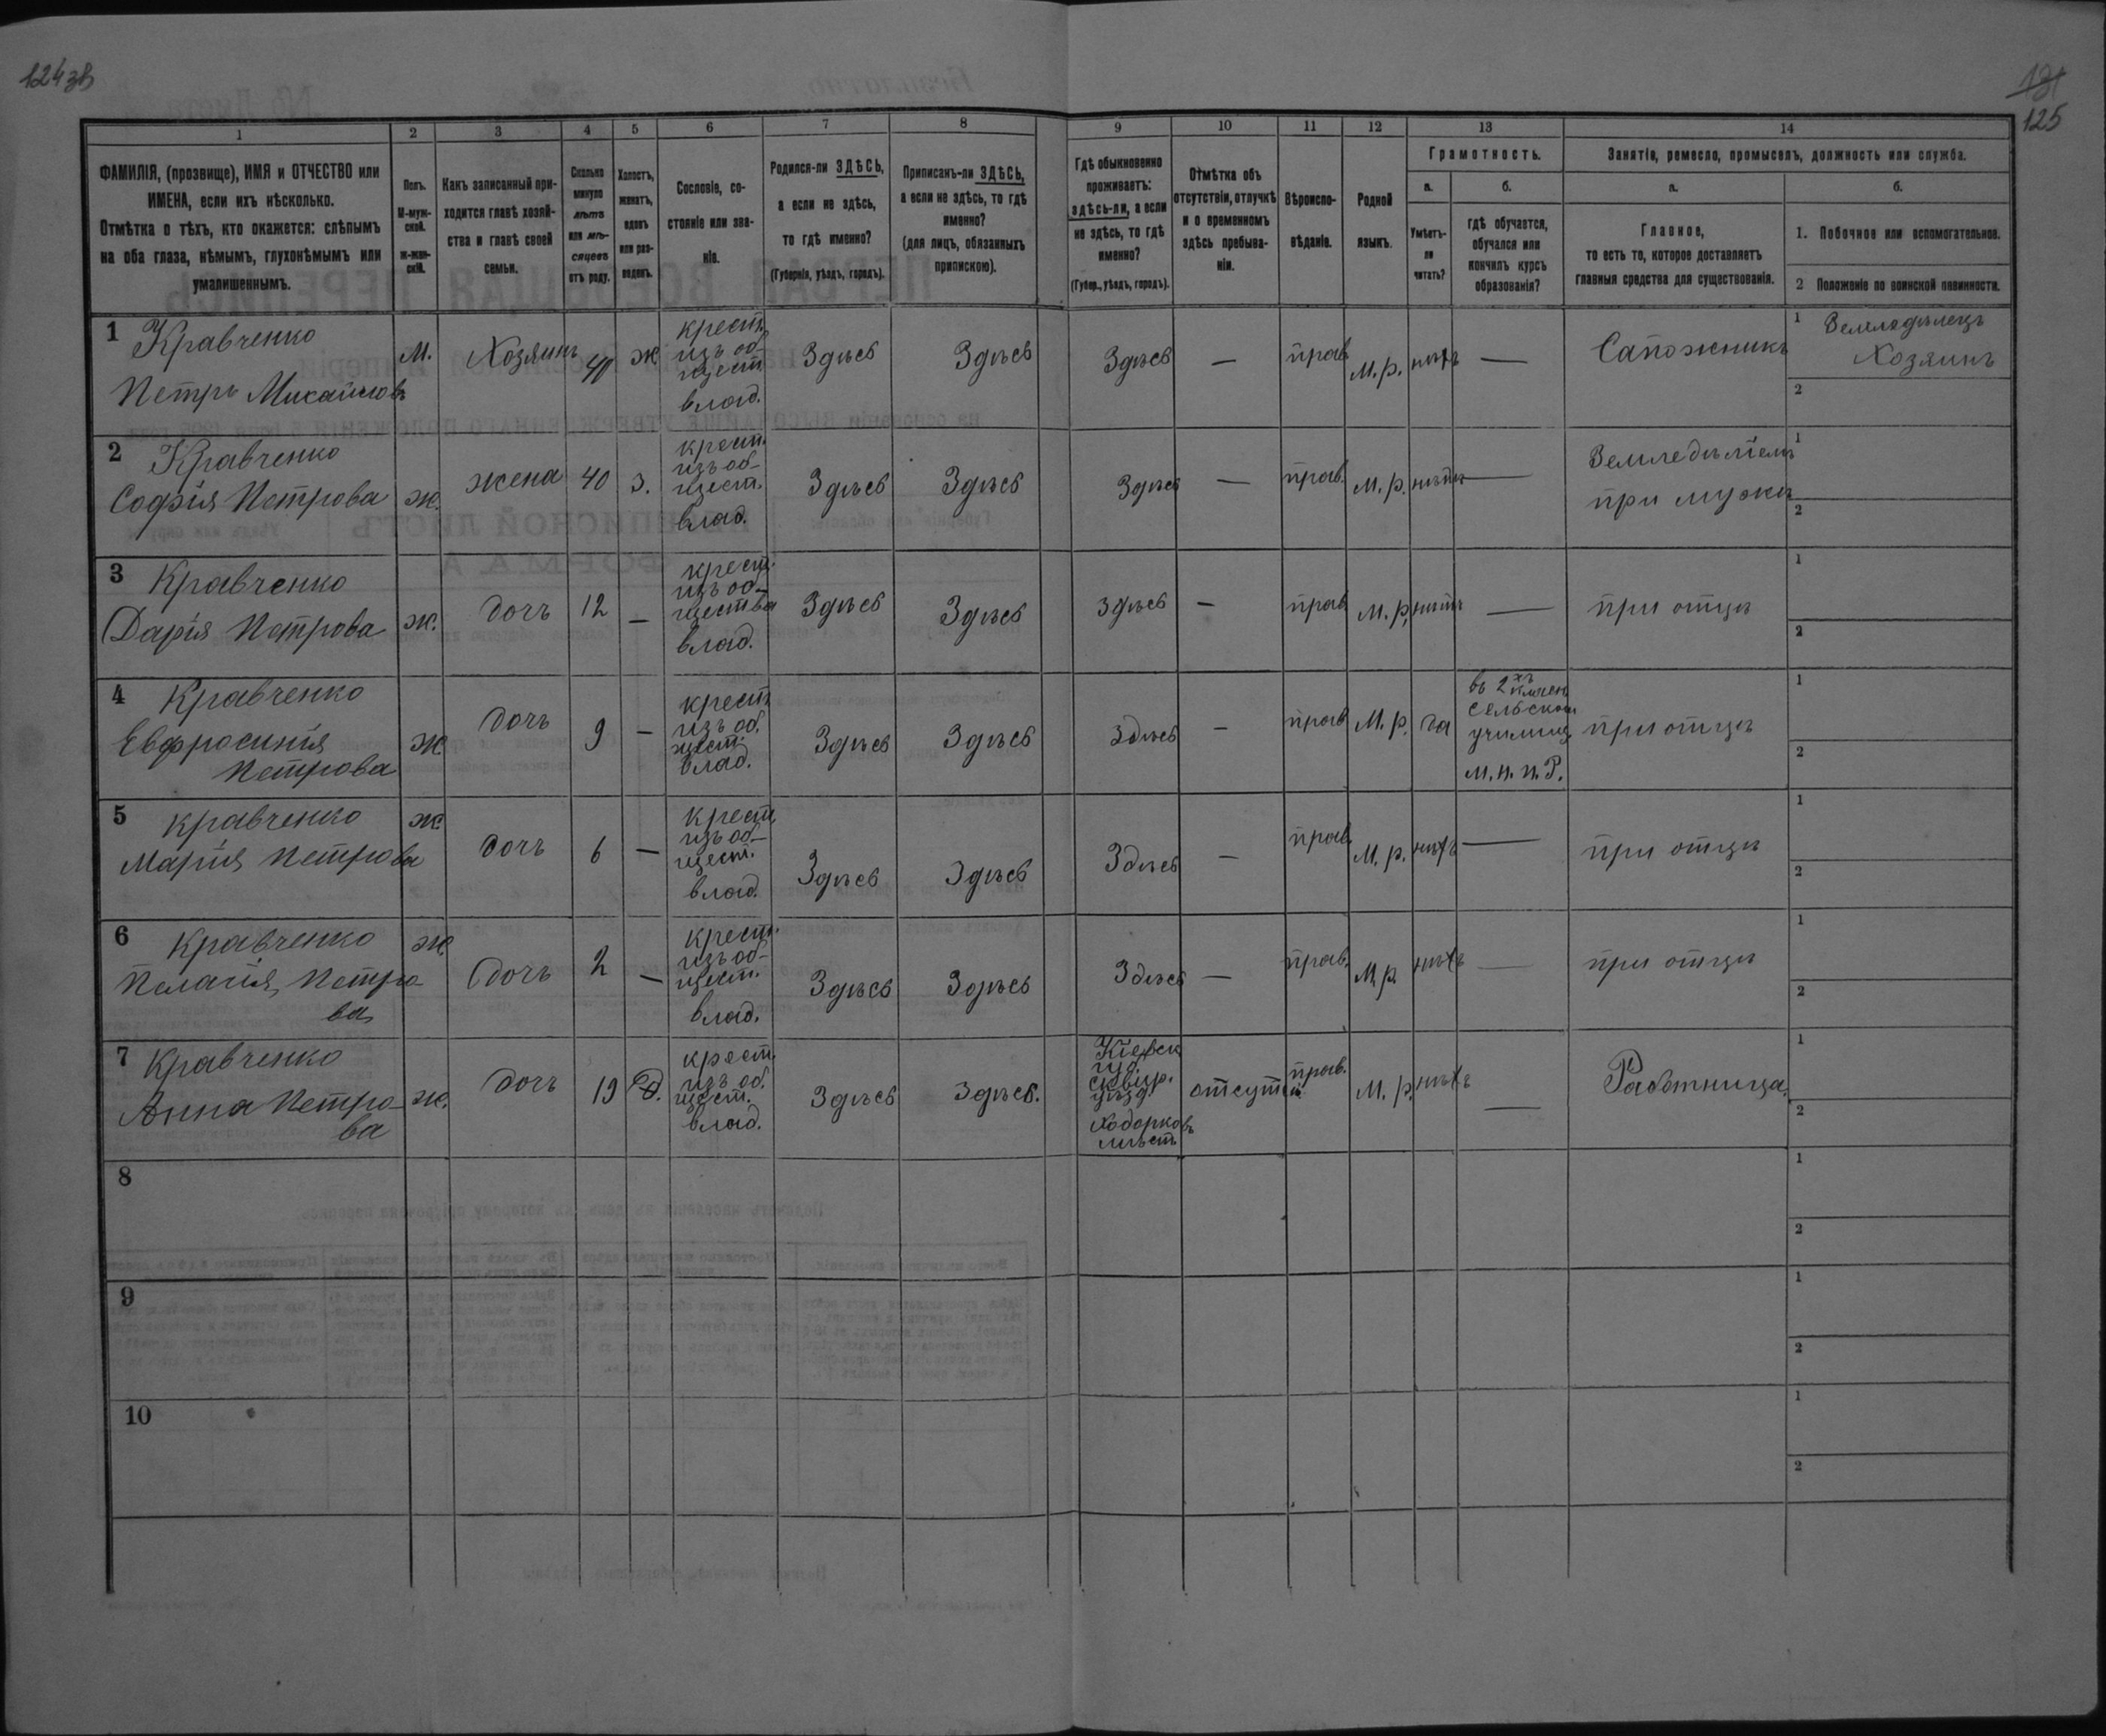 124 зв
131
125
1 2 3 4 5 6 7 8 9 10 11 12 13 14
ФАМИЛІЯ, (прозвище), ИМЯ и ОТЧЕСТВО или ИМЕНА, если ихъ нѣсколько.
Отмѣтка о тѣхъ, кто окажется: слѣпымъ на оба глаза, нѣмымъ, глухонѣмымъ или умалишеннымъ.
Полъ. М-мужской. Ж-женскій.
Какъ записанный приходится главѣ хозяйства и главѣ своей семьи.
Сколько минуло лѣтъ или мѣсяцевъ отъ роду.
Холостъ, женатъ, вдовъ или разведенъ.
Сословіе, состояніе или званіе.
Родился-ли ЗДѢСЬ, а если не здѣсь, то гдѣ именно?
(Губернія, уѣздъ, городъ).
Приписанъ-ли ЗДѢСЬ, а если не здѣсь, то гдѣ именно?
(для лицъ, обязанныхъ припискою).
Гдѣ обыкновенно проживаетъ: здѣсь-ли, а если не здѣсь, то гдѣ именно?
(Губер., уѣздъ, городъ).
Отмѣтка объ отсутствіи, отлучкѣ и о временномъ здѣсь пребываніи.
Вѣроисповѣданіе.
Родной языкъ.
Грамотность.
а. Умѣетъ-ли читать?
б. гдѣ обучается, обучался или кончилъ курсъ образованія?
Занятіе, ремесло, промыселъ, должность или служба.
а. Главное, то есть то, которое доставляетъ главныя средства для существованія.
б.
1. Побочное или вспомогательное.
2 Положеніе по воинской повинности.
1 Кравченко Петръ Михайловъ М. Хозяинъ ж крест. изъ общест. влад. Здѣсь Здѣсь Здѣсь — прав М. р. нѣтъ — Сапожникъ 1 Земледѣлецъ Хозяинъ 2
2 Кравченко Софія Петрова ж. жена 40 з. крест. изъ общест. влад. Здѣсь Здѣсь Здѣсь — прав. М. р. нѣтъ — при мужѣ 1 2
3 Кравченко Дарія Петрова ж. дочь 12 — крест. изъ общества влад. Здѣсь Здѣсь здѣсь — прав М. р. нѣтъ — при отцѣ 1 2
4 Кравченко Евфросинія Петрова ж дочь 9 — крест. изъ общест. влад. Здѣсь Здѣсь здѣсь — прав М. р. да въ 2хъ сельском училищ м. н. п. при отцѣ 1 2
5 Кравченко Марія Петрова ж дочь 6 — крест. изъ общест. влад. Здѣсь Здѣсь Здѣсь — прав. М. р. нѣтъ — при отцѣ 1 2
6 Кравченко Пелагія Петрова ж. дочь 2 — крест. изъ общест. влад. Здѣсь Здѣсь Здѣсь — прав. М. р. нѣтъ — при отцѣ 1 2
7 Кравченко Анна Петрова ж. дочь 19 Д. крест. изъ общест. влад. Здѣсь Здѣсь. Кіевск. губ. сквир. уѣзд. Ходорковъ мѣст. отсут. прав. М. р. нѣтъ — Работница. 1 2
8 1 2
9 1 2
10 1 2